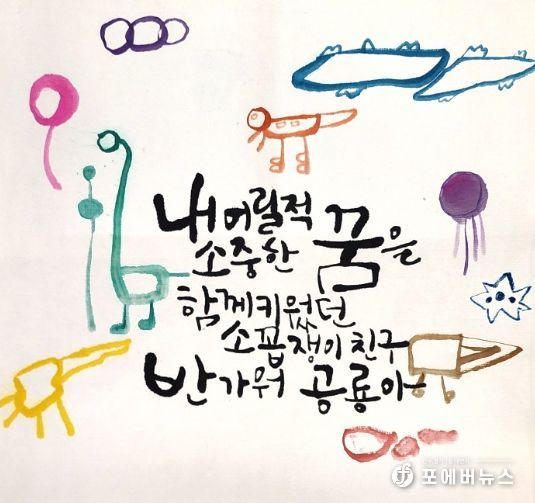 내 어릴적
소중한 꿈을
함께키웠던
소꼽쟁이 친구
반가워 공룡아
포에버뉴스